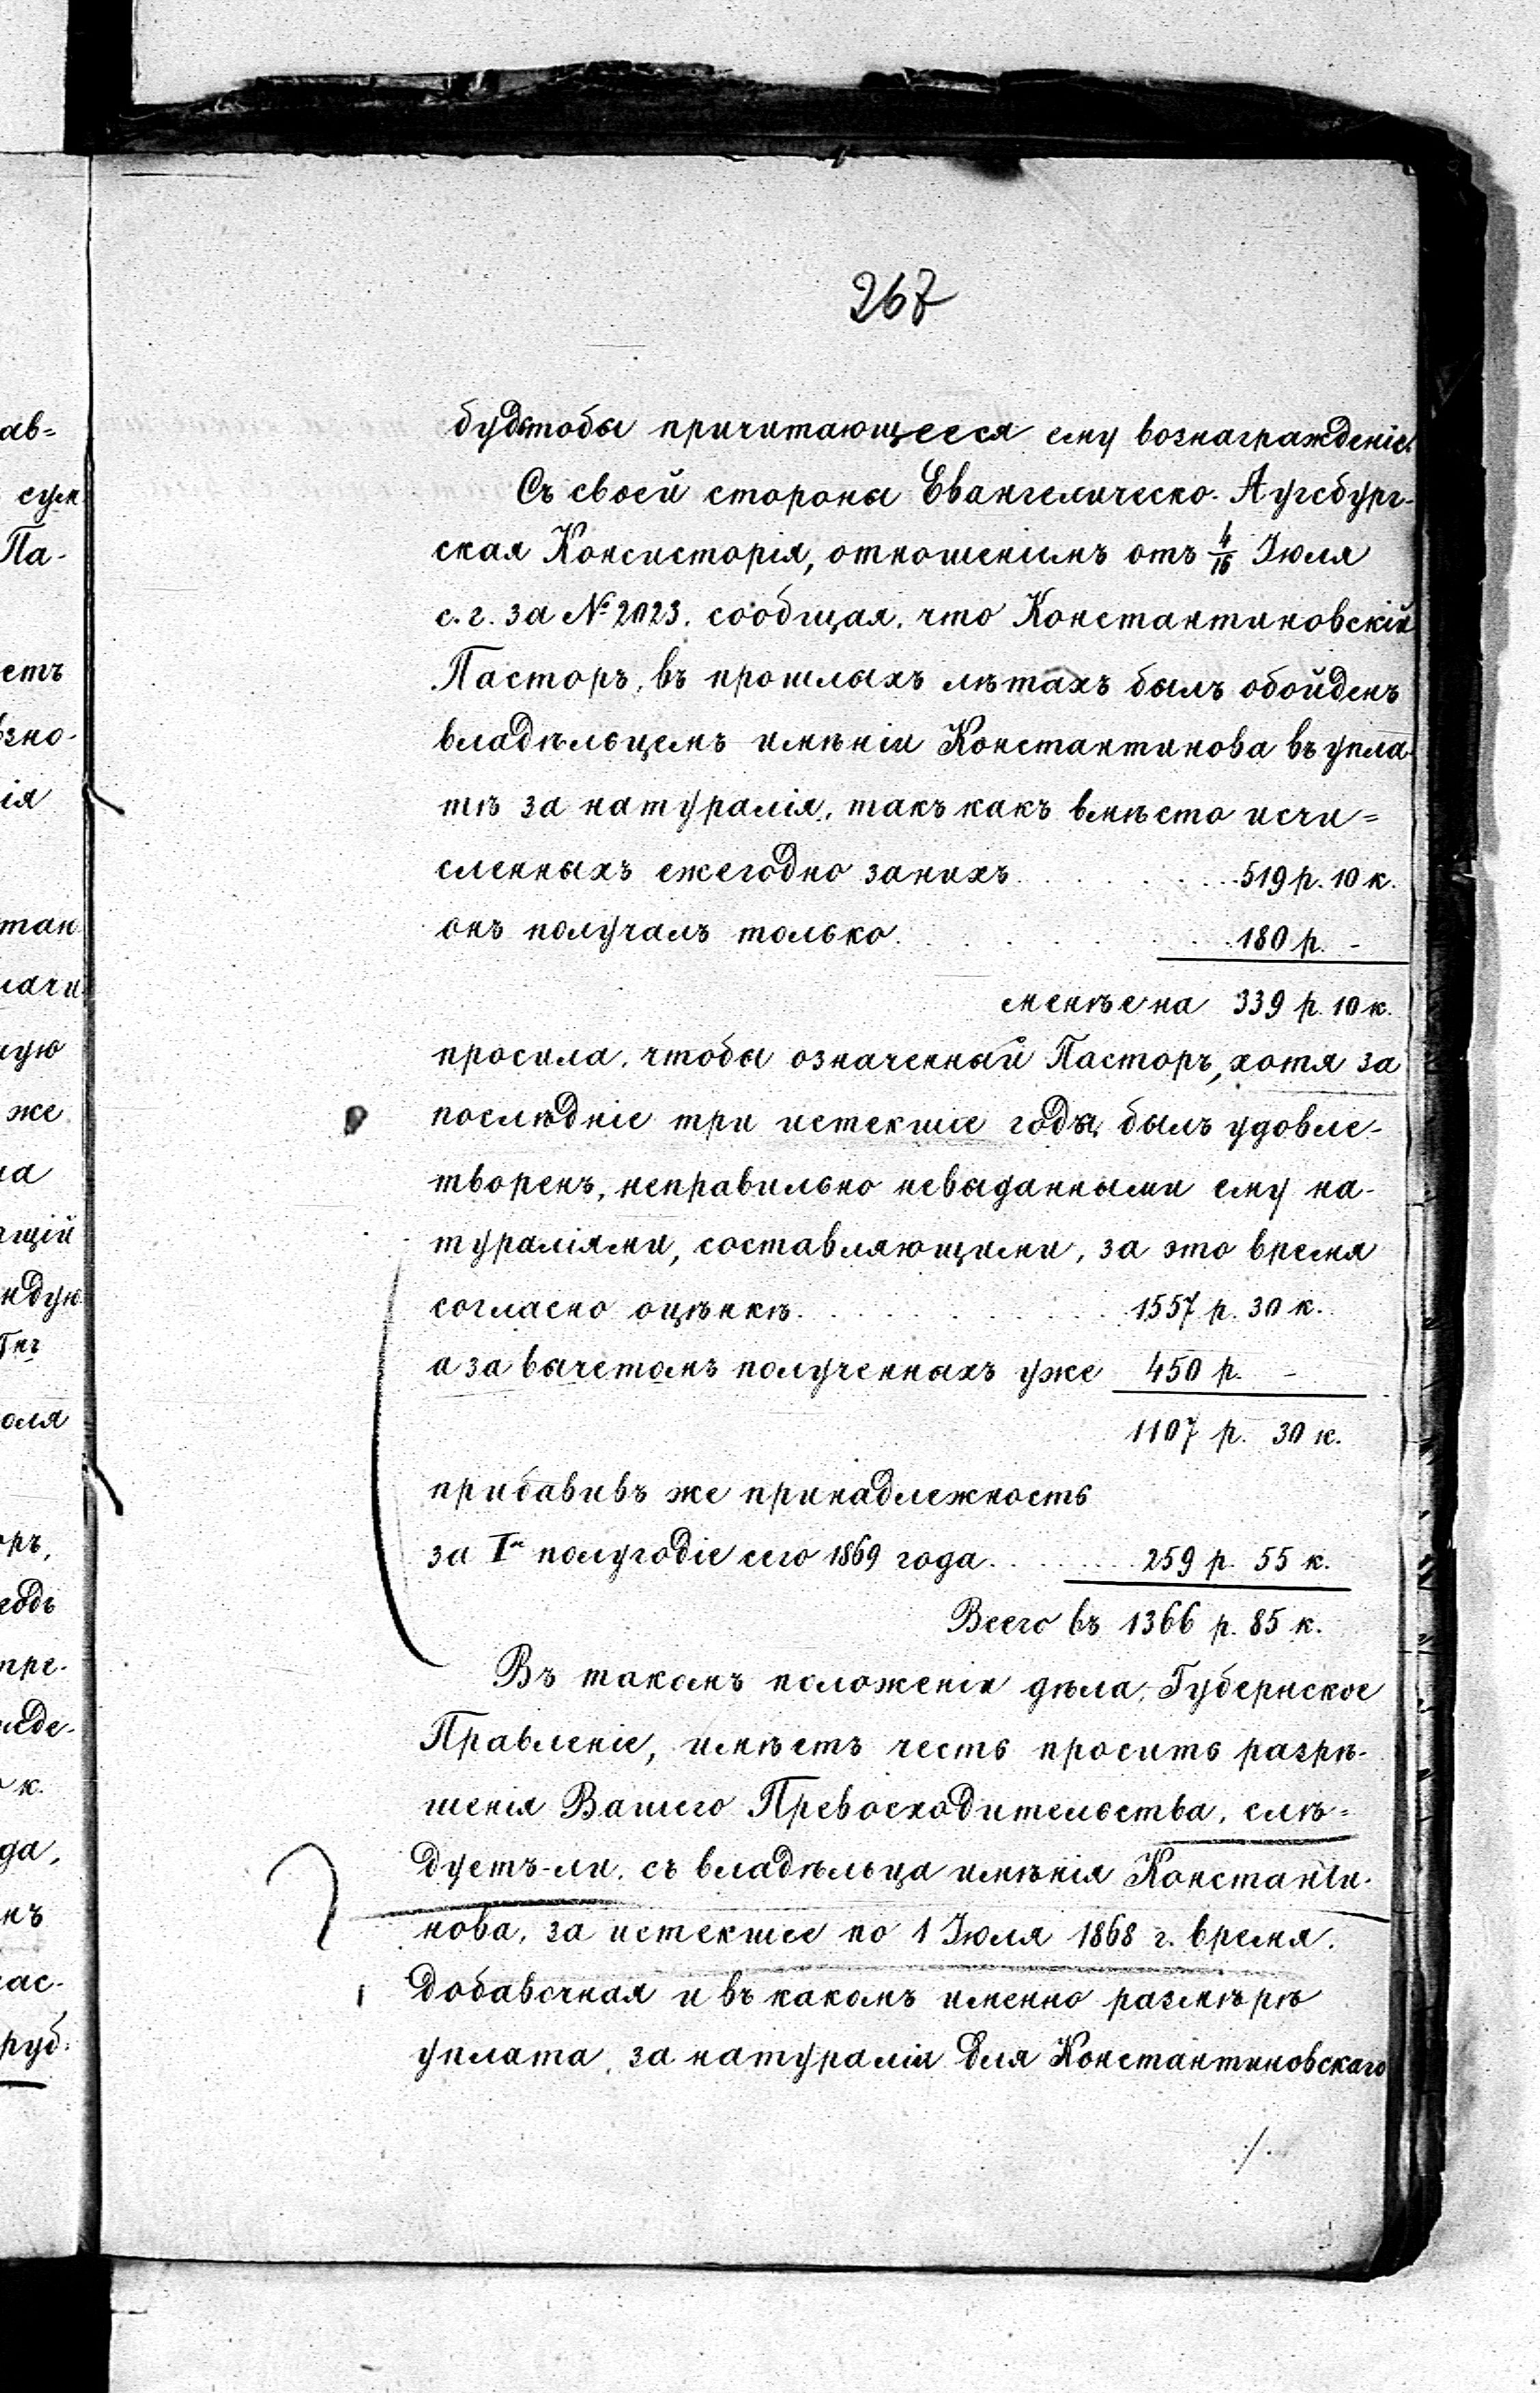 267
будтобы причитающееся ему вознагражденіе.
Съ своей стороны Евангелическо-Аугсбург-
ская Консисторія, отношеніемъ отъ 4/16 Іюля
с. г. за № 2023. сообщая, что Константиновскій
Пасторъ, въ прошлыхъ лѣтахъ былъ обойденъ
владѣльцемъ имѣнія Константинова въ упла-
тѣ за натуралія, такъ какъ вмѣсто исчи=
сленныхъ ежегодно за нихъ . . . . . 519 р. 10 к.
онъ получалъ только . . . . . . 180 р. -
менѣе на 339 р. 10 к.
просила, чтобы означенный Пасторъ, хотя за
послѣдніе три истекшіе года, былъ удовле-
творенъ, неправильно невыданными ему на-
тураліями, составляющими, за это время
согласно оцѣнкѣ . . . . . . 1557 р. 30 к.
а за вычетомъ полученныхъ уже 450 р. -
1107 р. 30 к.
прибавивъ же принадлежность
за Iе полугодіе сего 1869 года . . . . . 259 р. 55 к.
Всего въ 1366 р. 85 к.
Въ такомъ положеніи дѣла, Губернское
Правленіе, имѣетъ честь просить разрѣ-
шенія Вашего Превосходительства, слѣ=
дуетъ-ли, съ владѣльца имѣнія Константи-
нова, за истекшее по 1 Іюля 1868 г. время.
добавочная и въ какомъ именно размѣрѣ
уплата, за натураліи для Константиновскаго
./.
ав=
сум
Па-
етъ
зно-
ія
тан
лачи
ную
же
на
ящій
ндую
оля
оръ,
пре-
к.
да,
нъ
ас-
руб.